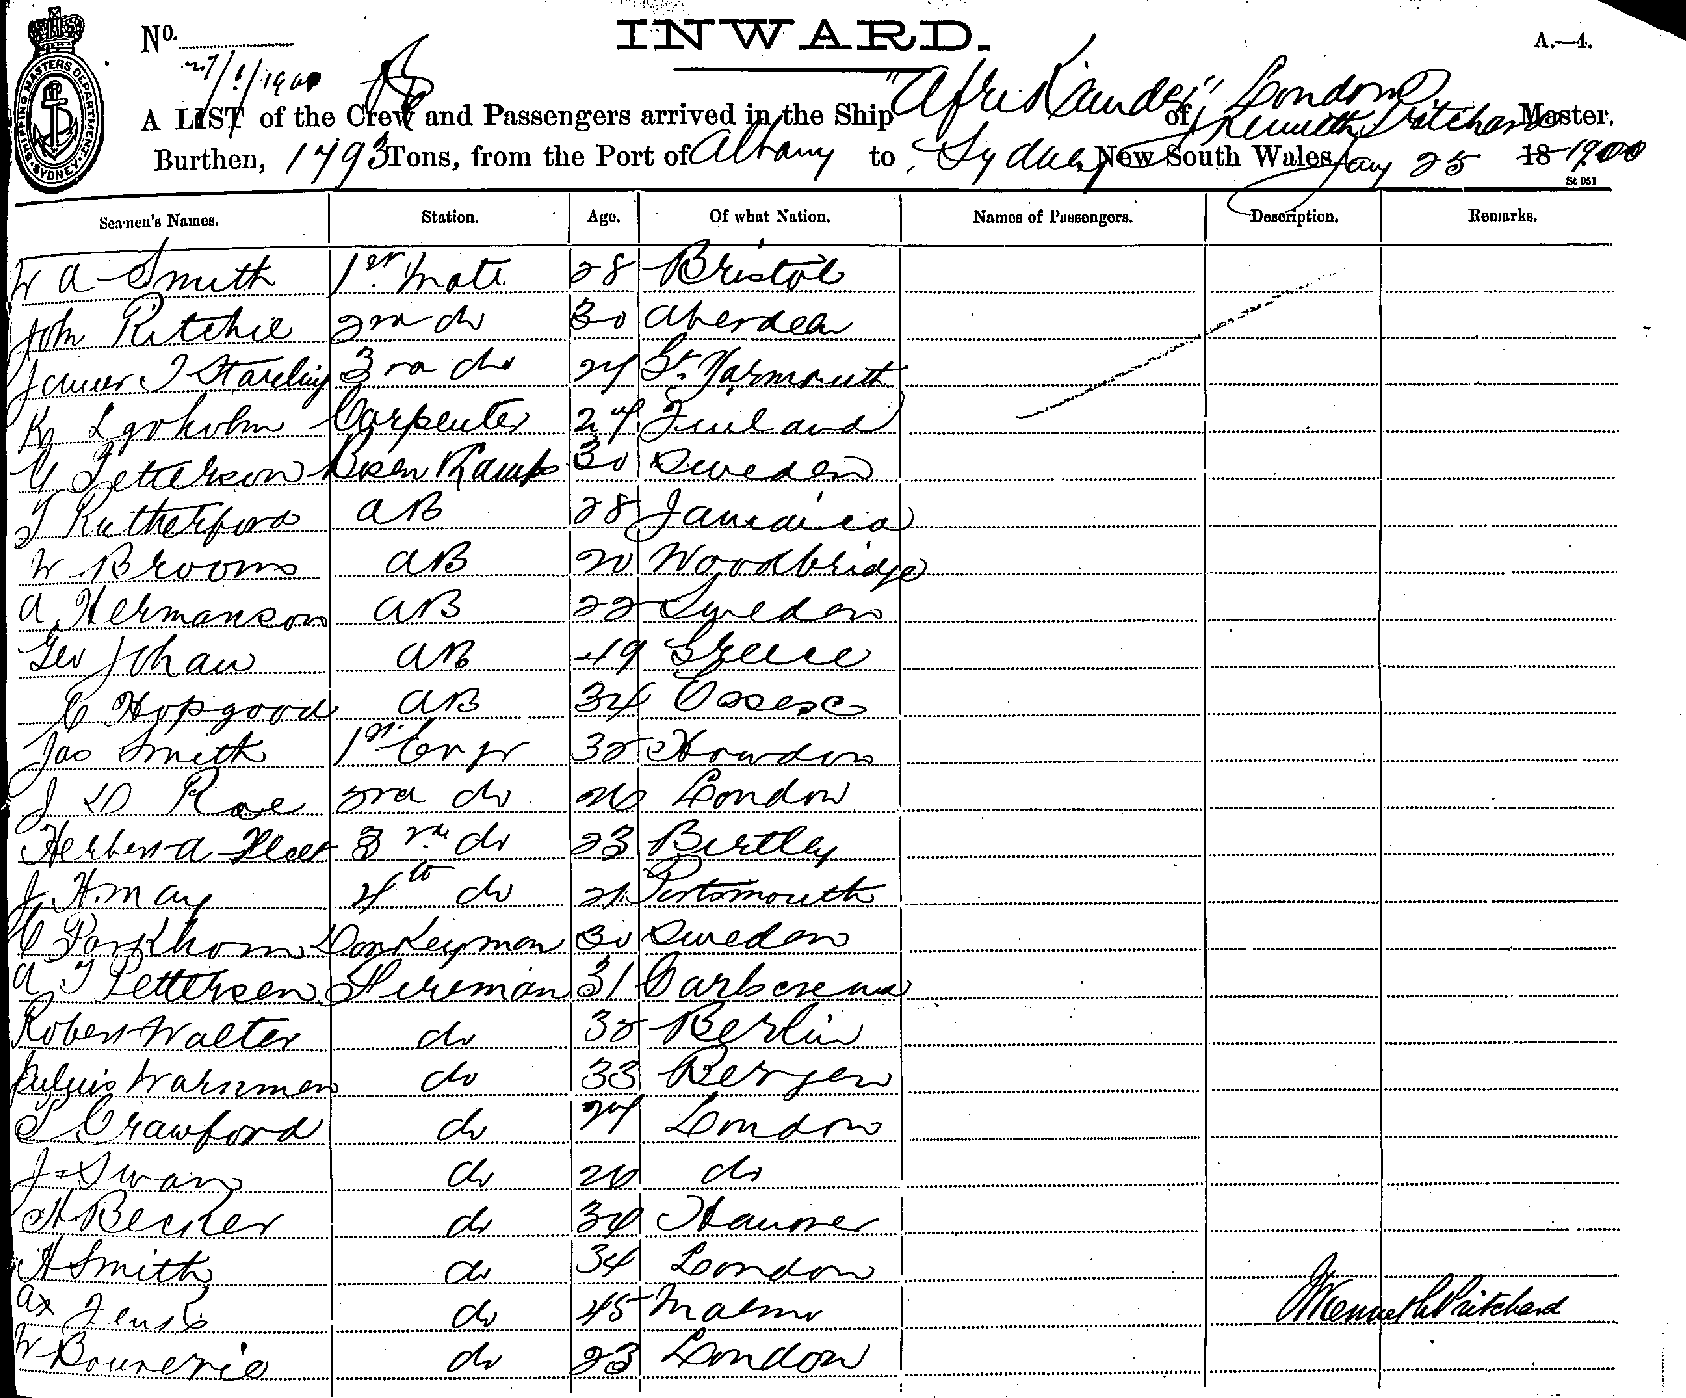 No.
INWARD.
A.—4.
27/1/1900
SHIPPING MASTERS DEPARTMENT SYDNEY
A LIST of the Crew and Passengers arrived in the Ship "Afrikander" of London Kenneth Pritchard Master,
Burthen, 1793 Tons, from the Port of Albany to Sydney New South Wales, Jany 25 18 1900
St 051
Seamen's Names. Station. Age. Of what Nation. Names of Passengers. Description. Remarks.
W A Smith 1st Mate 28 Bristol
John Ritchie 2nd do 30 Aberdeen
James T Starling 3rd do 24 Gt. Yarmouth
K Carpenter 24 Finland
G Petterson 30 Sweden
T Rutherford AB 28 Jamaica
W Brooms AB 20 Woodbridge
A Hermanson AB 22 Sweden
Geo Johan AB 49 Greece
C Hopgood AB 34 Essex
Jas Smith 1st Engr 32 Howdon
J D Rae 2nd do 26 London
Herbert A 3rd do 23 Birtley
J H May 4th do 21 Portsmouth
C Donkeyman 30 Sweden
A T Pettersen Fireman 31
Robert Walter do 32 Berlin
Julius do 33 Bergen
T Crawford do 24 London
J Swan do 26 do
H Becker do 34 Hanover
H Smith do 34 London
Ax Jensis do 45 Malmo
W Bouverie do 23 London
J Kenneth Pritchard